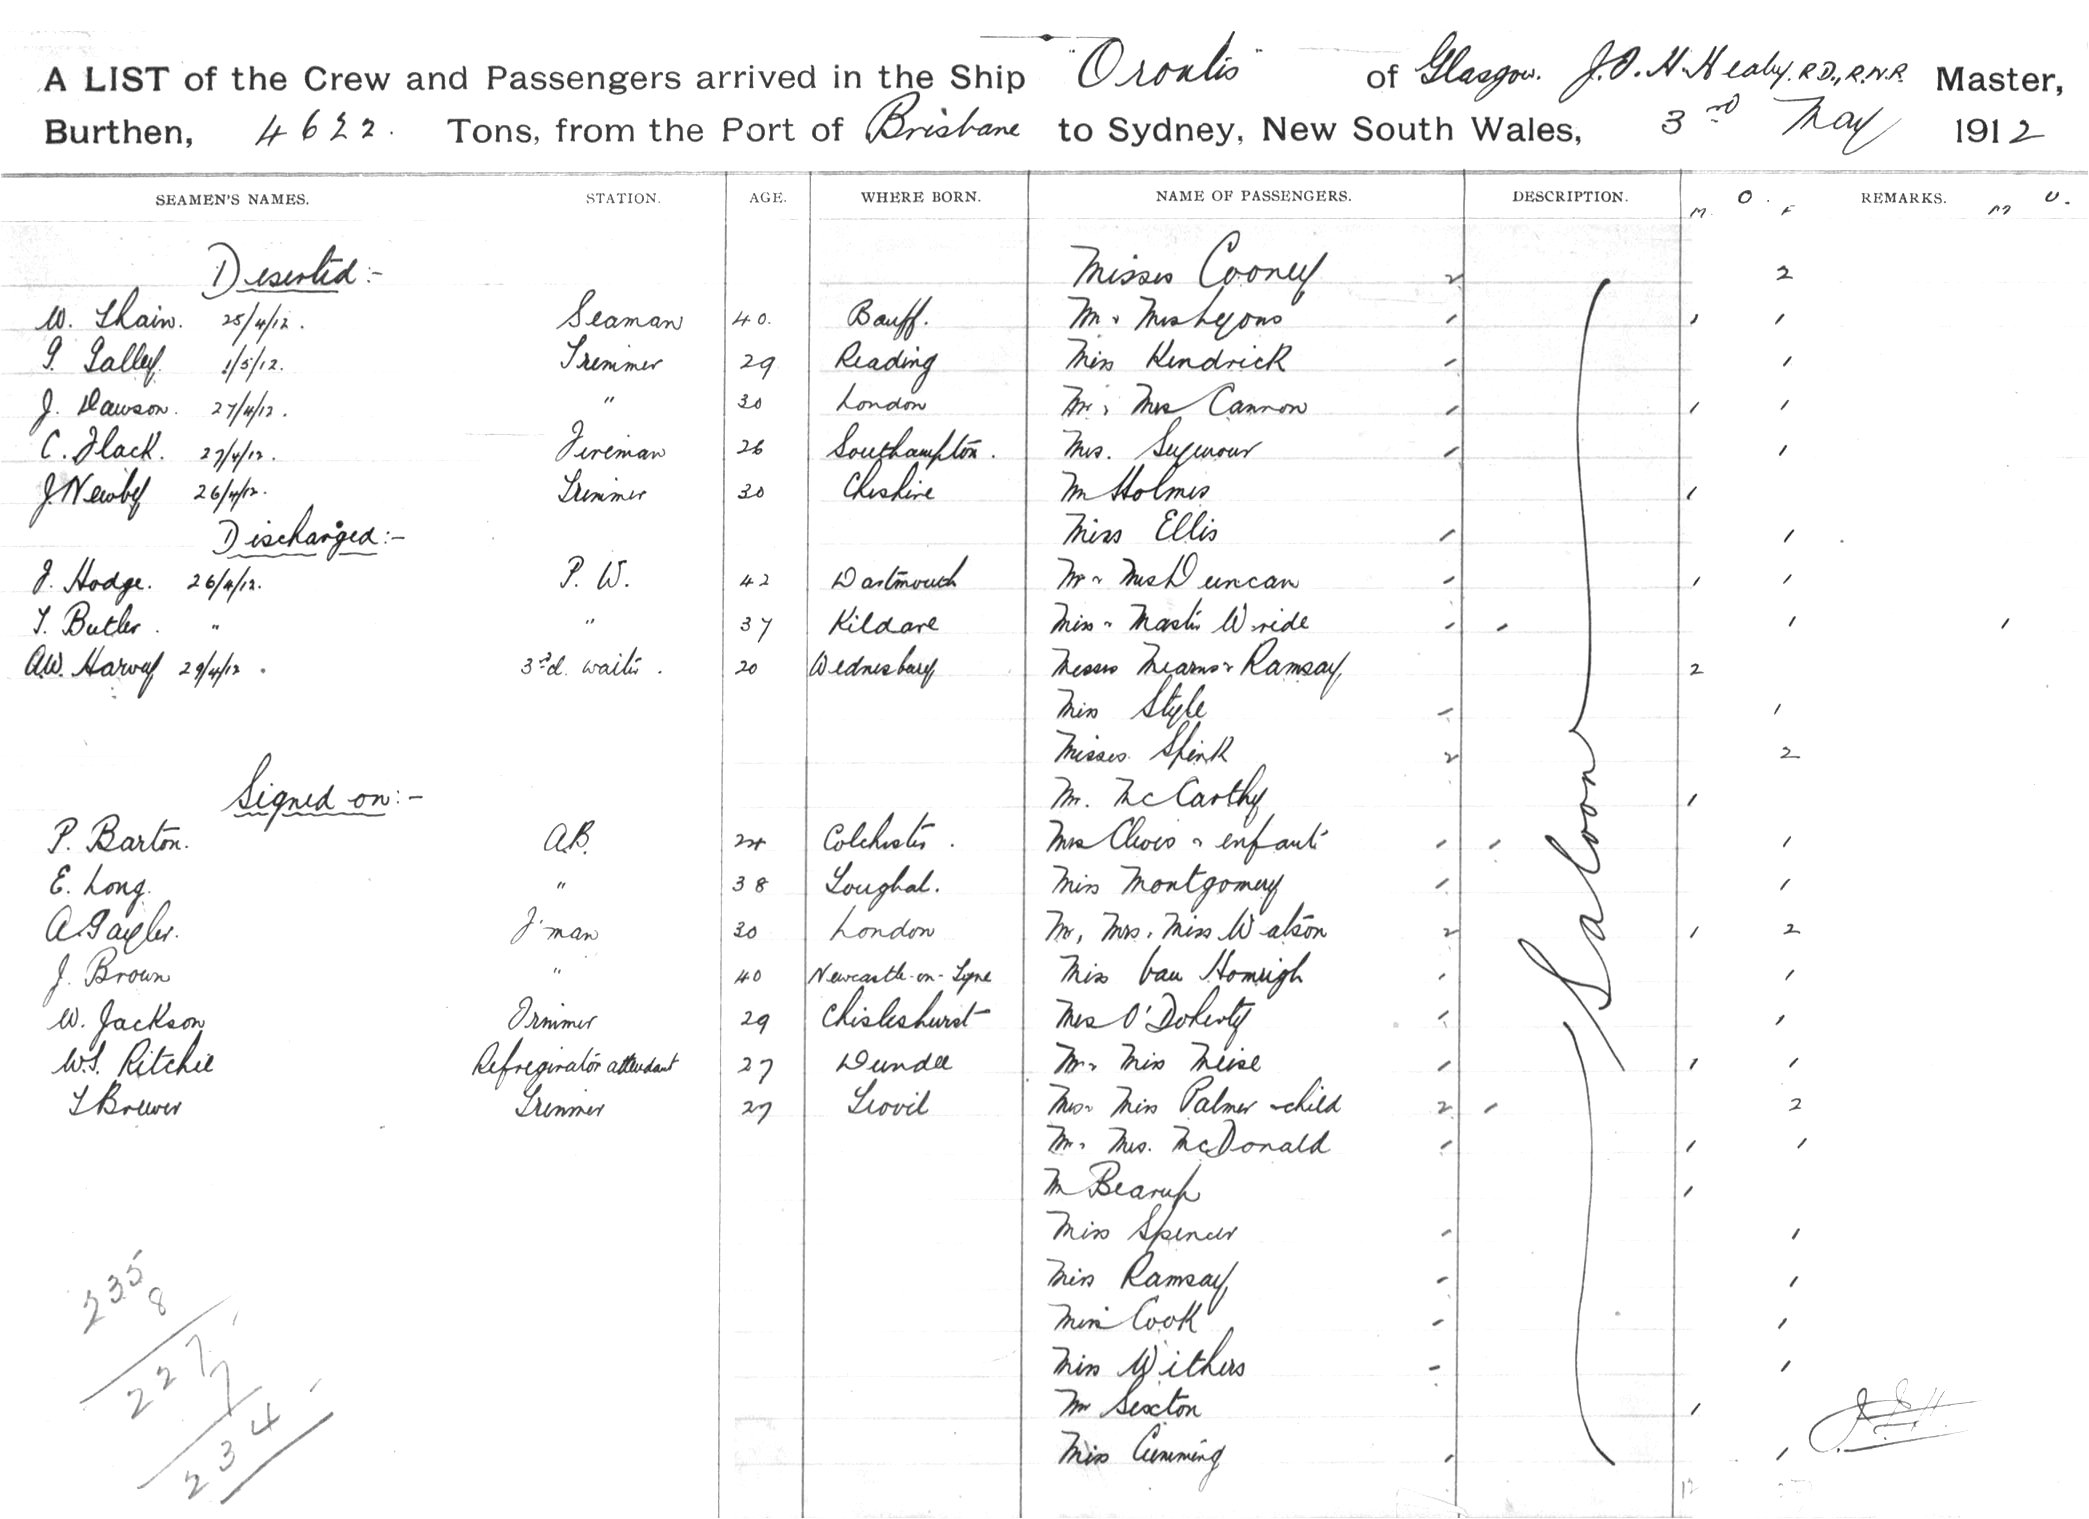 A LIST of the Crew and Passengers arrived in the Ship "Orontes" of Glasgow. J.O.H. Healy. R.D., R.N.R. Master,
Burthen, 4622. Tons, from the Port of Brisbane to Sydney, New South Wales, 3rd May 1912
SEAMEN'S NAMES. STATION. AGE. WHERE BORN. NAME OF PASSENGERS. DESCRIPTION. M. O. F REMARKS. M U.
Deserted:- Misses Cooney 2 2
W. Thain. 25/4/12. Seaman 40. Banff. Mr & Mrs Lyons 1 1 1
G. Galley. 1/5/12. Trimmer 29 Reading Miss Kendrick 1 1
J. Dawson. 27/4/12. " 30 London Mr & Mrs Cannon 1 1 1
C. Flack. 27/4/12. Fireman 26 Southampton. Mrs. Seymour 1 1
J. Newby 26/4/12. Trimmer 30 Cheshire Mr Holmes 1
Discharged:- Miss Ellis 1 1
J. Hodge. 26/4/12. P. W. 42 Dartmouth Mr & Mrs Duncan 1 1 1
T. Butler. " " 37 Kildare Miss & Master Wride 1 1 1 1
A.W. Harvey 29/4/12. 3rd. waiter. 20 Wednesbury Messrs Mearns & Ramsay 2
Miss Style 1 1
Misses. Spink 2 2
Signed on:- Mr. McCarthy 1
P. Barton. A.B. 24 Colchester. Mrs & infant 1 1 1
E. Long. " 38 Youghal. Miss Montgomery 1 1
A. Gayler. F'man 30 London Mr, Mrs. Miss Watson 2 1 2
J. Brown " 40 Newcastle-on-Tyne Miss van Homrigh 1 1
W. Jackson Trimmer 29 Chislehurst Mrs O'Doherty 1 1
W.S. Ritchie Refregirator attendant 27 Dundee Mr & Miss Meise 1 1 1
T Brewer Trimmer 27 Yeovil Mrs & Miss Palmer & child 2 1 2
Mr & Mrs. McDonald 1 1 1
Mr Bearup 1
Miss Spencer 1 1
Miss Ramsay 1 1
Miss Cook 1 1
Miss Withers 1 1
Mr Sexton 1
Miss Cumming 1 1
Saloon
235
8
227
7
234
12